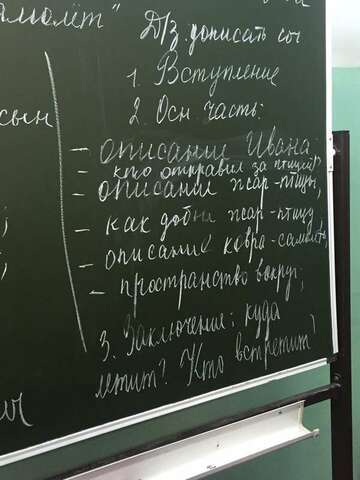 амолёт"
Д/з. дописать соч
1. Вступление
2. Осн. часть:
сын
– описание Ивана;
– кто отправил за птицей?
– описание жар-птицы,
– как добыл жар-птицу
– описание ковра-самолёта,
– пространство вокруг;
3. Заключение: куда
летит? Кто встретит?